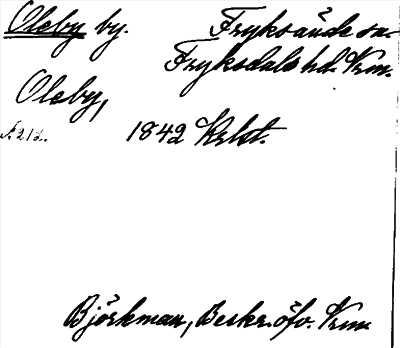 Oleby by. Fryksände sn.
Fryksdals hd. Vrm.
Oleby,
N 212. 1842 Krlst.
Björkman, Beskr. öfv. Vrm